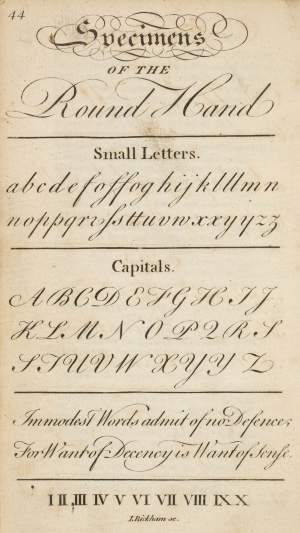 44
Specimens
OF THE
Round Hand
Small Letters.
a b c d e f o f f o g h i j k l l l m n
n o p p q r r s s t t u v w x x y y z z
Capitals.
A B C D E F G H I J
K L M N O P Q R S
S T U V W X Y Y Z
Immodest Words admit of no Defence;
For Want of Decency is Want of Sense.
I II III IV V VI VII VIII IX X
I. Bickham sc.